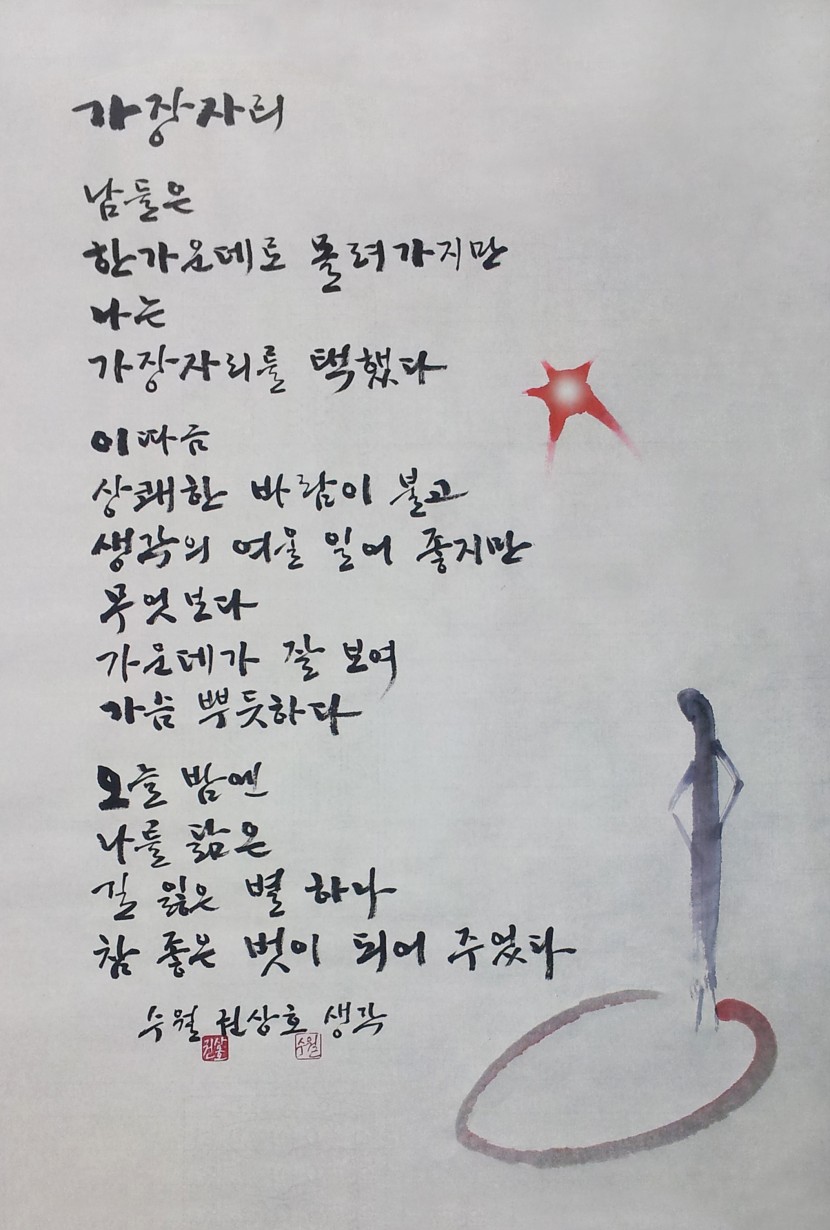 가장자리
남들은
한가운데로 몰려가지만
나는
가장자리를 택했다
이따금
상쾌한 바람이 불고
생각의 여울 일어 좋지만
무엇보다
가운데가 잘 보여
가슴 뿌듯하다
오늘 밤엔
나를 닮은
길 잃은 별 하나
참 좋은 벗이 되어 주었다
수월 권상호 생각
수월